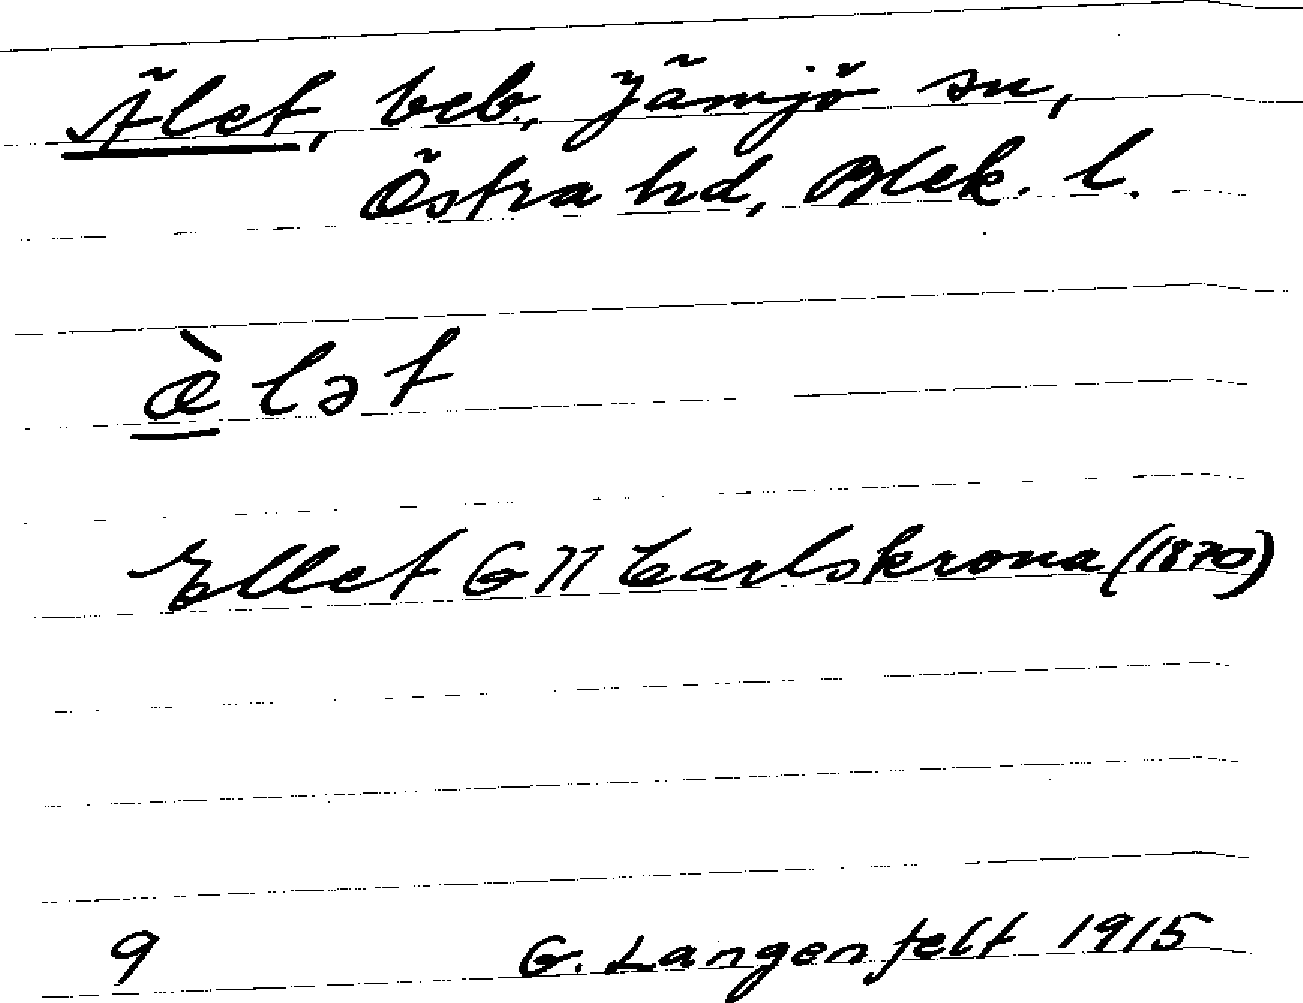 Älet, beb., Jämjö sn,
Östra hd, Blek. l.
æ̀ lət
Ellet G N Carlskrona (1870)
9 G. Langenfelt 1915